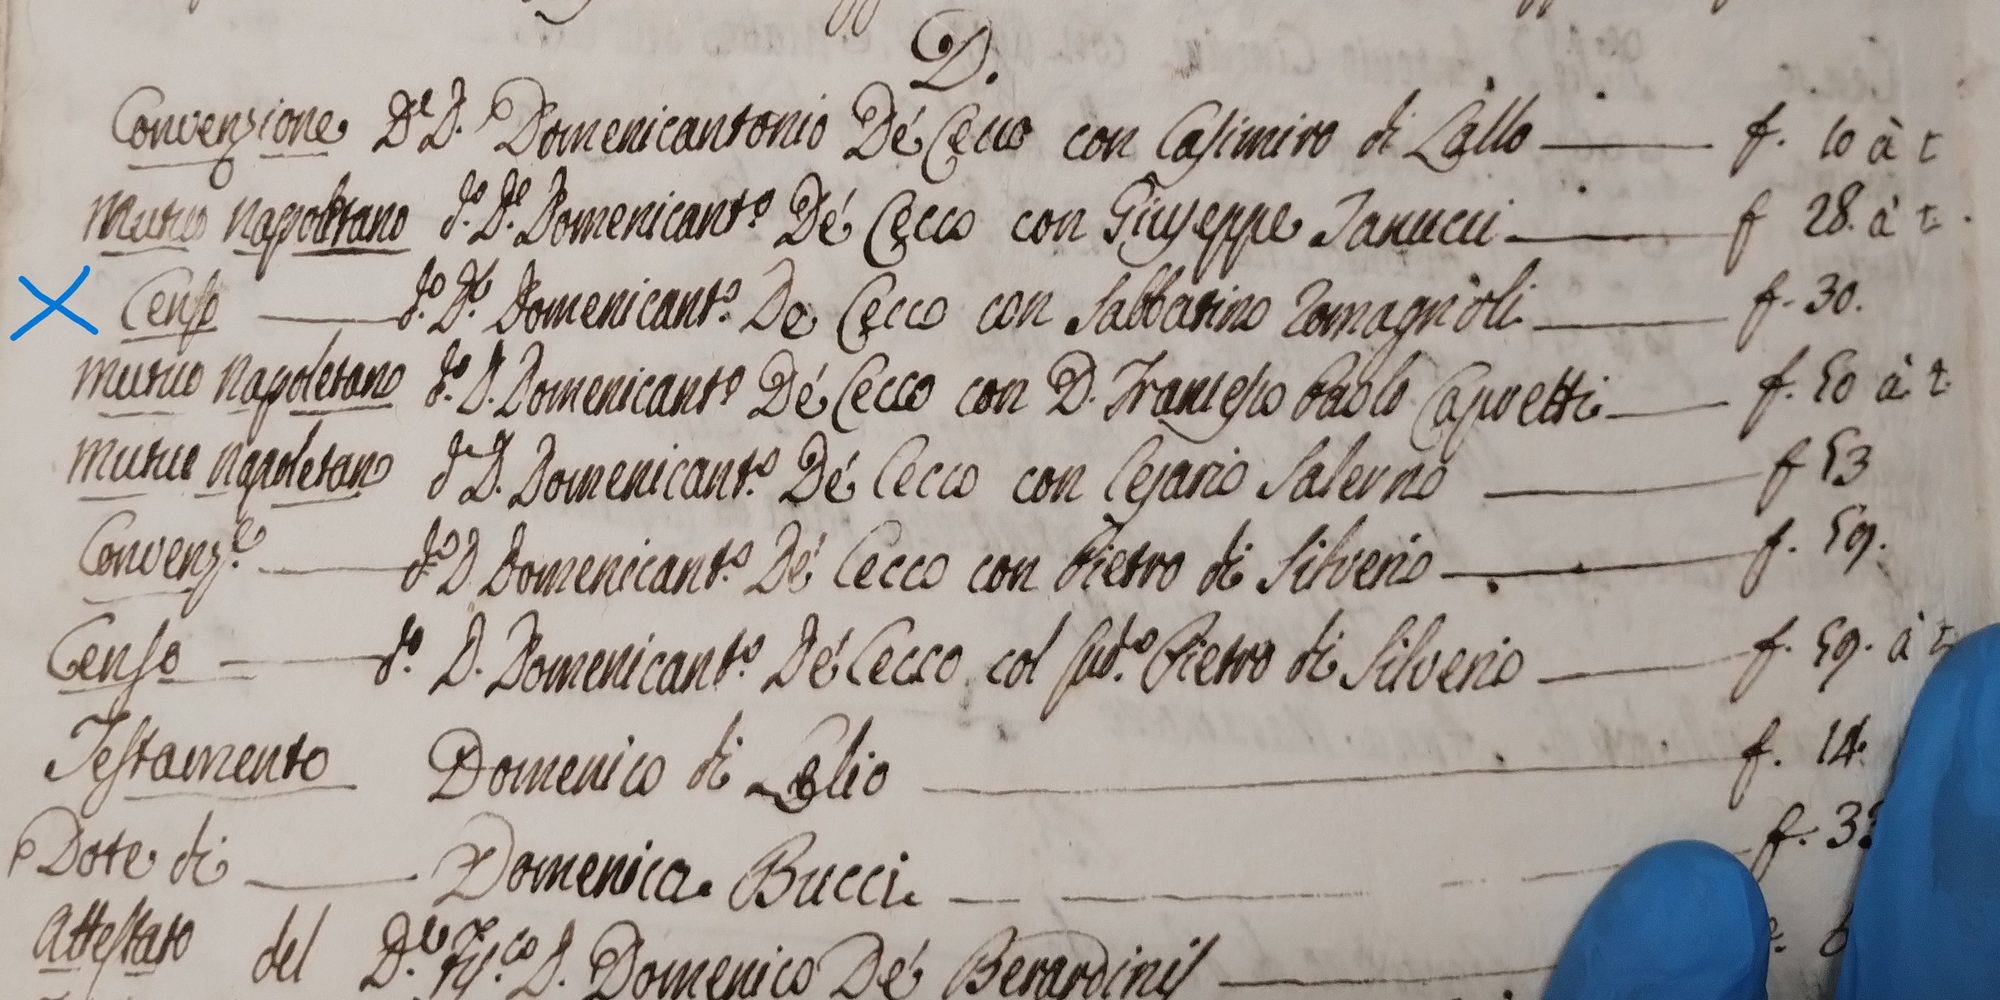 D.
Convenzione D.r D. Domenicantonio De' Cecco con Casimiro di Lallo f. 10 à t
Mutuo Napoletano d.o D.r Domenicant.o De' Cecco con Giuseppe Ianucci f 28. à t.
Censo d.o D.r Domenicant.o De Cecco con Sabbatino Romagnioli f. 30.
Mutuo Napoletano d.o D. Domenicant.o De' Cecco con D. Francesco Paolo Capretti f. 50 à t.
Mutuo Napoletano d.o D. Domenicant.o De' Cecco con Cesario Salerno f 53
Convenz.e d.o D Domenicant.o De' Cecco con Pietro di Silverio f. 59.
Censo d.o D. Domenicant.o De' Cecco col sud.o Pietro di Silverio f. 59. à t
Testamento Domenico di Lelio f. 14.
Dote di Domenica Bucci f. 33
Attestato del D.r Fis.co D. Domenico De' Berardinis